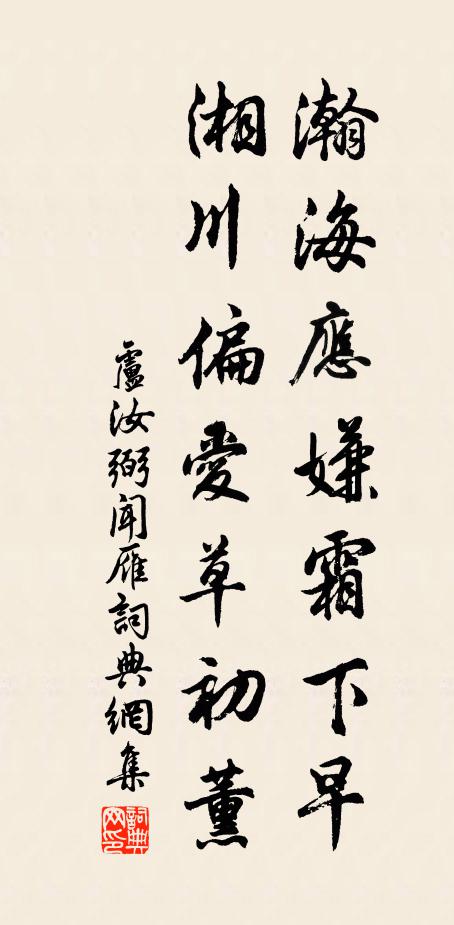 瀚海應嫌霜下早
湘川偏愛草初薰
盧汝弼聞雁詞典網集
詞典網印